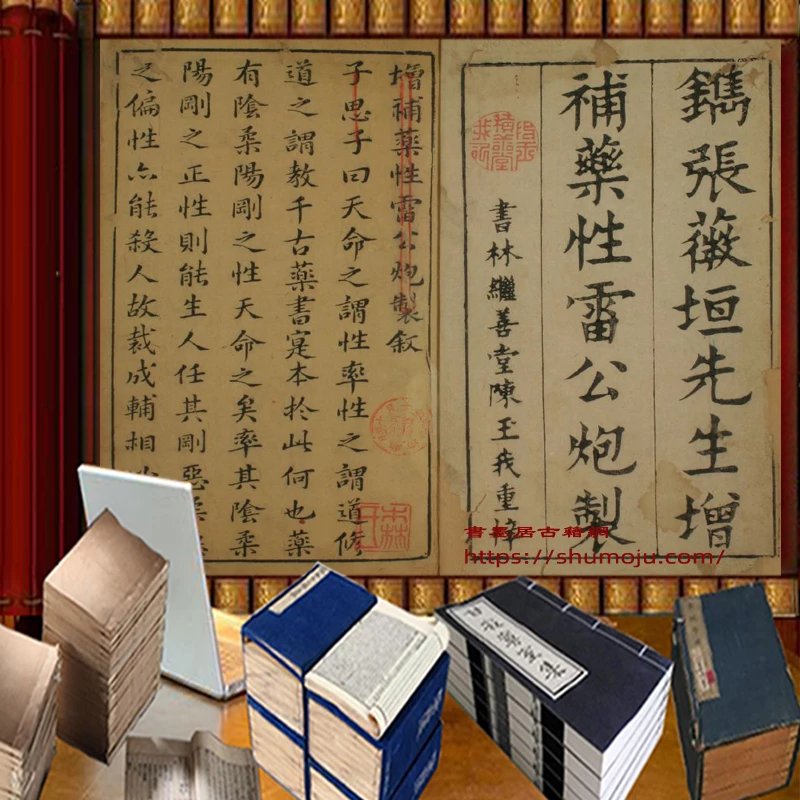 鐫張薇垣先生增
補藥性雷公炮製
書林繼善堂陳玉我重梓
增補藥性雷公炮製敘
子思子曰天命之謂性率性之謂道修
道之謂教千古藥書寔本於此何也藥
有陰柔陽剛之性天命之矣率其陰柔
陽剛之正性則能生人任其剛惡柔
之偏性亦能殺人故裁成輔相
書墨居古籍網
https://shumoju.com/